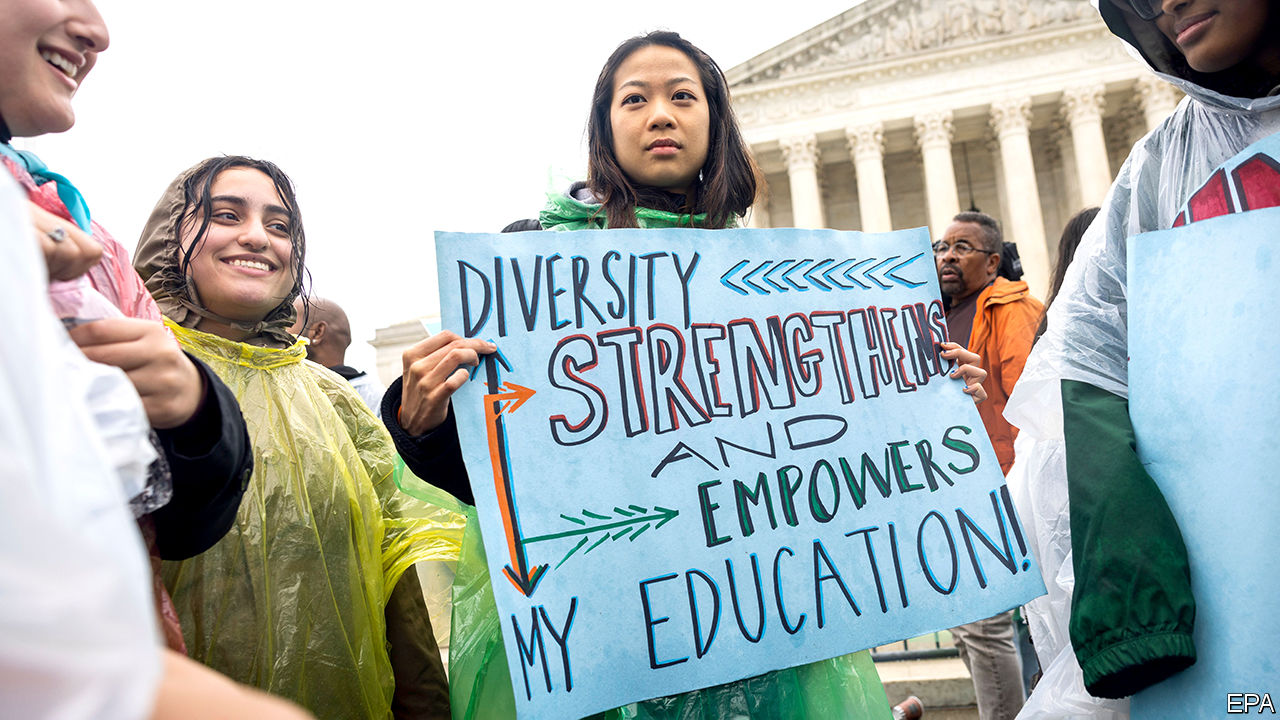 DIVERSITY
STRENGTHENS
AND
EMPOWERS
MY EDUCATION!
EPA